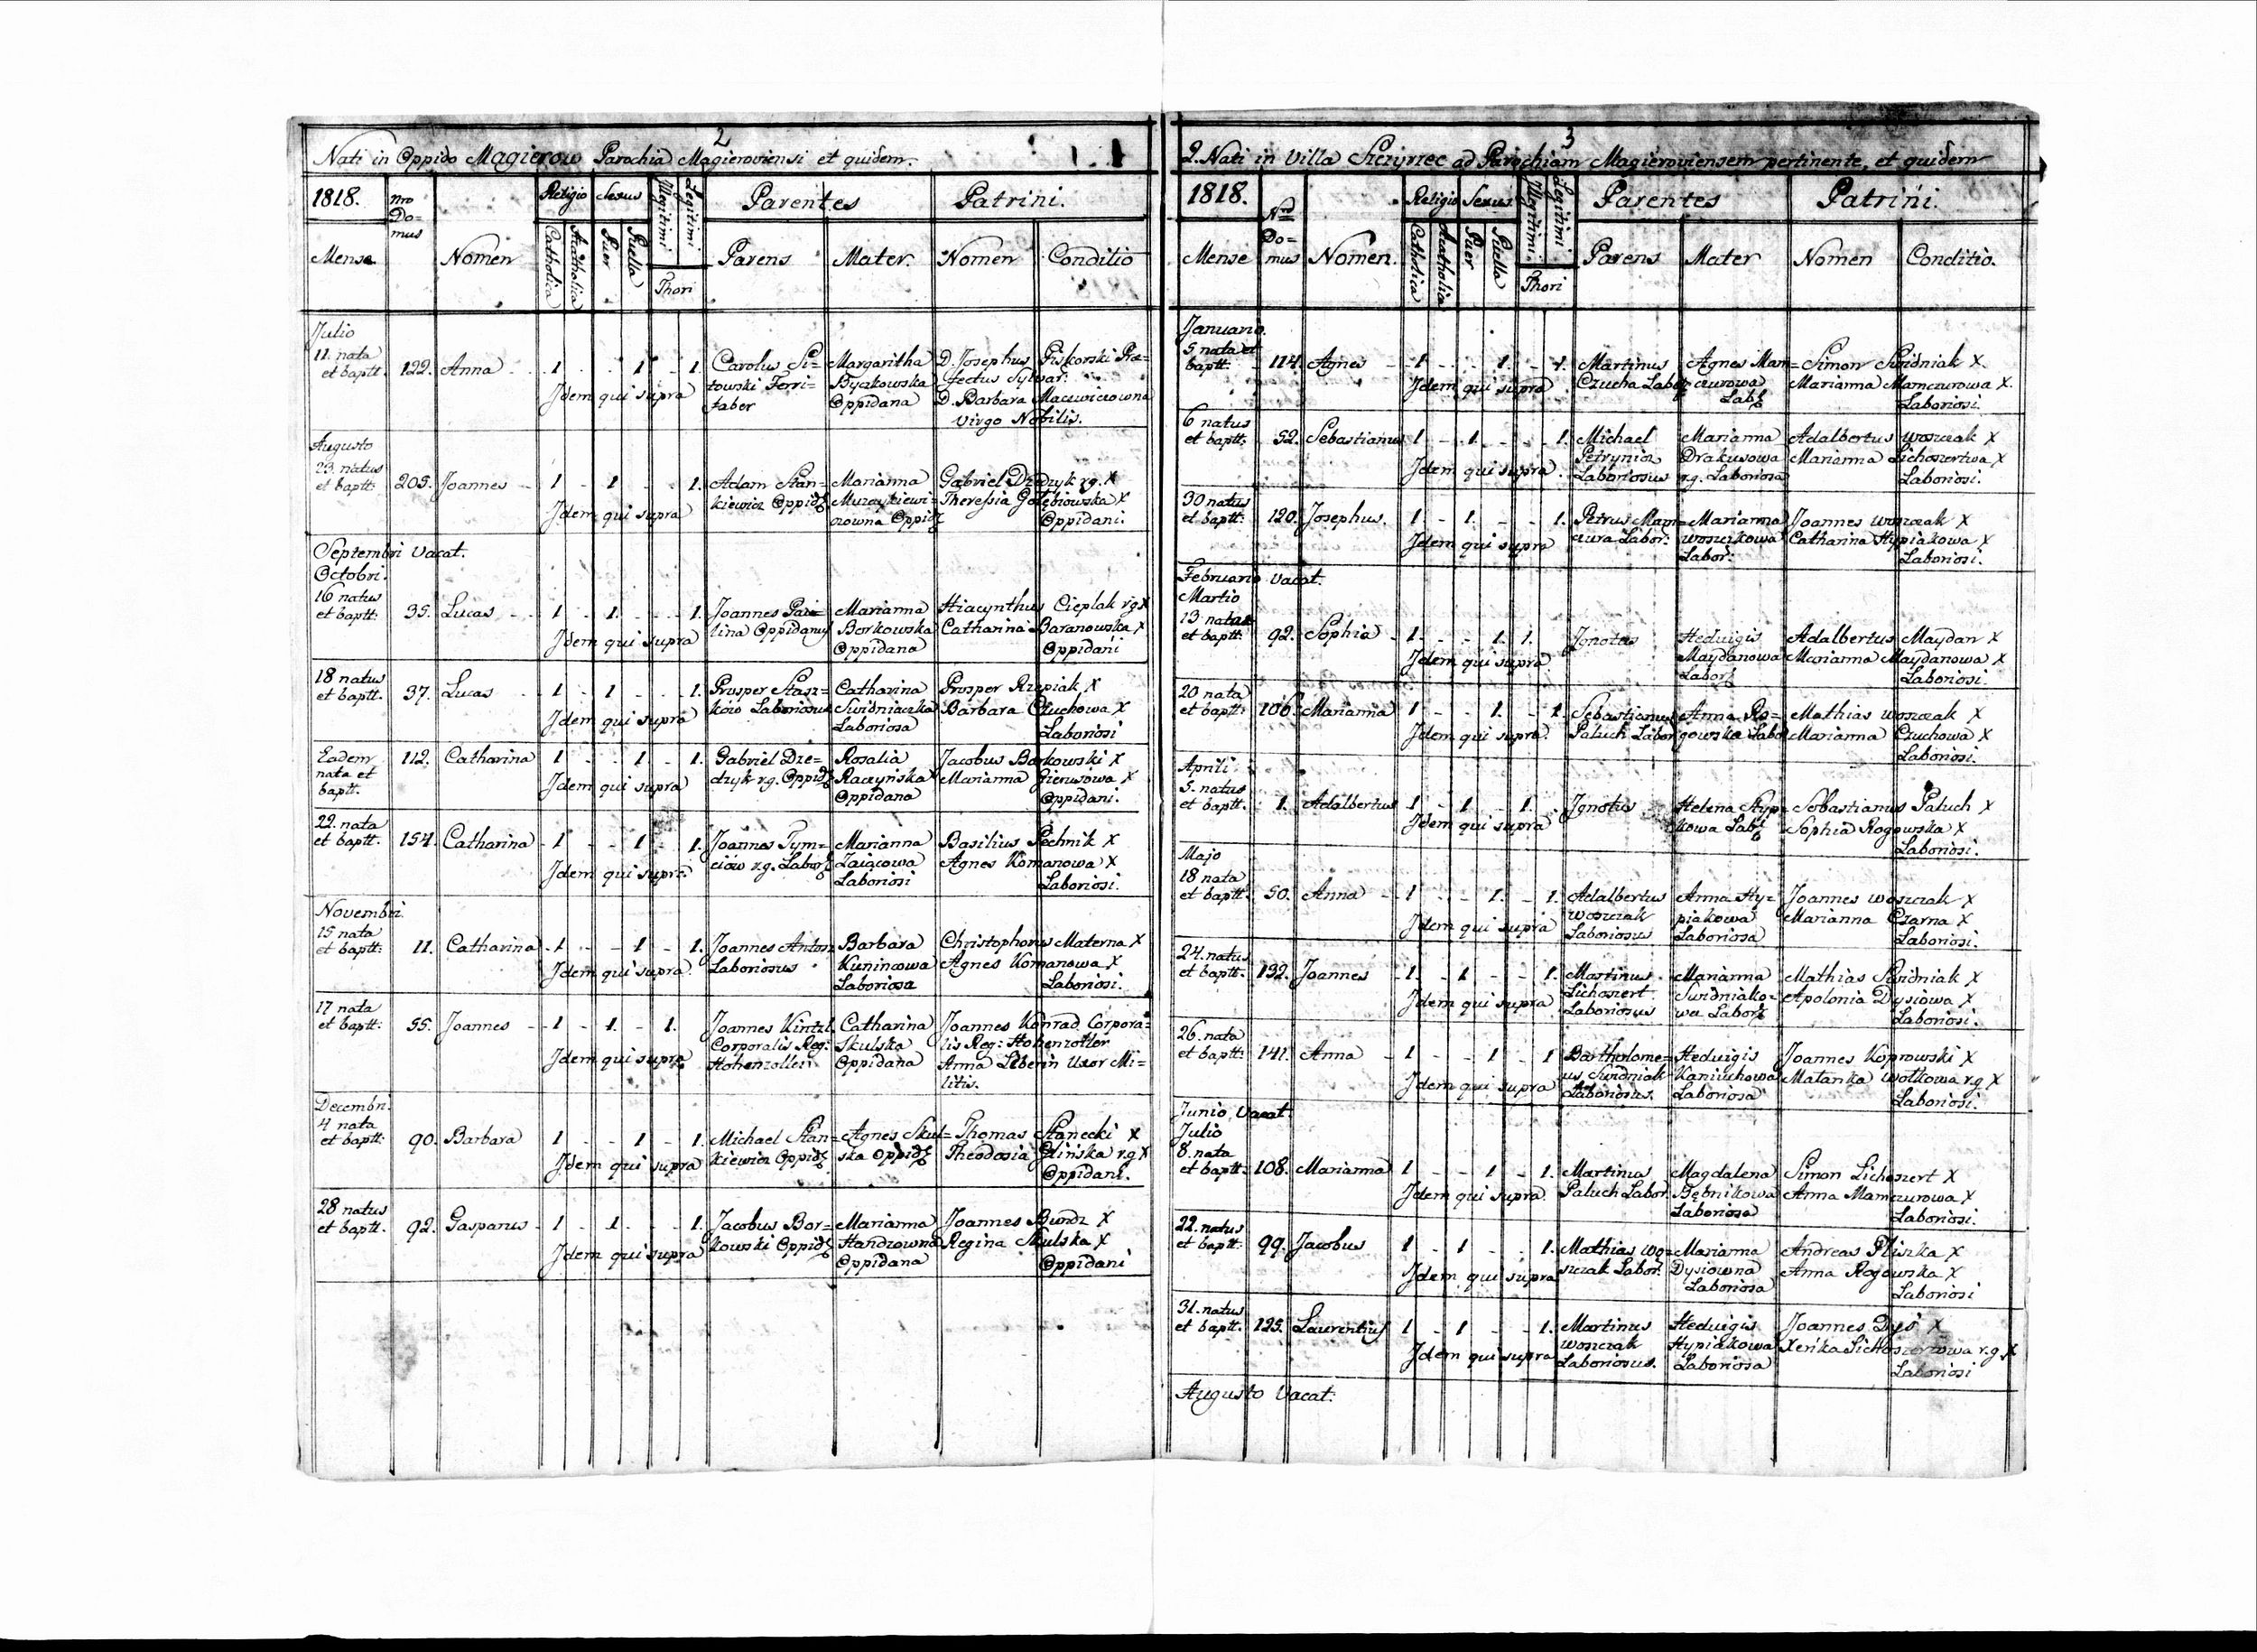 2
Nati in Oppido Magierow Parochia Magieroviensi et quidem.
1818. Nro Do= mus Religio Sexus Illegitimi Legitimi Parentes Patrini.
Mense Nomen Catholica Acatholica Puer Puella Thori Parens Mater. Nomen Conditio
Julio
11. nata et baptt. 122. Anna 1 1 1. Carolus Margaritha D. Josephus Piskorski
Idem qui supra towski Ferri= Byczkowska fectus Sylvar:
faber Oppidana D. Barbara Maciewiczowna
Virgo Nobilis.
Augusto
23. natus et baptt: 205. Joannes 1 1 1. Adam Stan= Marianna Gabriel Dzedzyk r.g. X
Idem qui supra kiewicz Theressia Gołębiowska X
Oppidani.
Septembri Vacat.
Octobri.
16 natus et baptt: 35. Lucas 1 1. 1. Joannes Marianna Hiacynthus Cieplak r.g X
Idem qui supra lina Oppidanus Borkowska Catharina Baranowska X
Oppidana Oppidani
18 natus et baptt. 37. Lucas 1 1 1. Prosper Stasz= Catharina Prosper Rzepiak X
Idem qui supra ków Laboriosus Swidniaczka Barbara Czuchowa X
Laboriosa Laboriosi
Eadem nata et baptt. 112. Catharina 1 1 1. Gabriel Dze= Rosalia Jacobus Borkowski X
Idem qui supra dzyk r.g. Raczyńska Marianna Gierusowa X
Oppidana Oppidani.
22. nata et baptt. 154. Catharina 1 1 1. Joannes Tym= Marianna Basilius Pechnik X
Idem qui supra ciów r.g. Zaiącowa Agnes Komanowa X
Laboriosi Laboriosi.
Novembri.
15 nata et baptt: 11. Catharina 1 1 1. Joannes Anton Barbara Christophorus Materna X
Idem qui supra. Laboriosus Agnes Komanowa X
Laboriosa Laboriosi.
17 nata et baptt: 55. Joannes 1 1. 1. Joannes Kintzl Catharina Joannes Konrad Corpora=
Idem qui supra Corporalis Reg: Skulska lis Reg: Hohenzoller
Hohenzoller Oppidana Anna Leberin Uxor Mi=
litis.
Decembri.
4 nata et baptt: 90. Barbara 1 1 1. Michael Stan= Agnes Skul= Thomas Stanecki X
Idem qui supra kiewicz ska Theodosia Glińska r.g X
Oppidani.
28 natus et baptt. 92. Gasparus 1 1. 1. Jacobus Bor= Marianna Joannes Bundz X
Idem qui supra kowski Handzowna Regina Skulska X
Oppidana Oppidani
3
2. Nati in Villa Szczyrzec ad Parochiam Magieroviensem pertinente, et quidem
1818. Nro Do= mus Religio Sexus Illegitimi Legitimi Parentes Patrini.
Mense Nomen. Catholica Acatholica Puer Puella Thori Parens Mater Nomen Conditio.
Januario.
5 nata et baptt. 114. Agnes 1 1 1. Martinus Agnes Mam= Simon Swidniak X
Idem qui supra Czucha czurowa Marianna Mamczurowa X.
Laboriosi.
6 natus et baptt: 52. Sebastianus 1 1. 1. Michael Marianna Adalbertus Woszczak X
Idem qui supra. Drakusowa Marianna Lichoszertwa X
Laboriosus r.g. Laboriosa Laboriosi.
30 natus et baptt: 120. Josephus. 1 1. 1. Petrus Mam= Marianna Joannes Woszczak X
Idem qui supra czura Labor: Catharina Hypiakowa X
Labor: Laboriosi.
Februario Vacat.
Martio
13 et baptt: 92. Sophia 1 1. 1. Ignotus Heduigis Adalbertus Maydan X
Idem qui supra. Maydanowa Marianna Maydanowa X
Laboriosi.
20 nata et baptt: 106. Marianna 1 1. 1. Sebastianus Anna Ro= Mathias Woszczak X
Idem qui supra. Paluch Labor: gowska Marianna Czuchowa X
Laboriosi.
Aprili
5. natus et baptt: 1. Adalbertus 1 1 1. Ignotus Helena Hyp= Sebastianus Paluch X
Idem qui supra kowa Sophia Rogowska X
Laboriosi.
Majo
18 nata et baptt. 50. Anna 1 1. 1. Adalbertus Anna Hy= Joannes Woszczak X
Idem qui supra Woszczak piakowa Marianna Czarna X
Laboriosus Laboriosa Laboriosi.
24. natus et baptt. 132. Joannes 1 1 1. Martinus Marianna Mathias Swidniak X
Idem qui supra Lichoszert Swidniako= Apolonia Dysiowa X
Laboriosus wa Laboriosi.
26. nata et baptt: 141. Anna 1 1 1 Bartholome= Heduigis Joannes Koprowski X
Idem qui supra us Swidniak Kaniuchowa Matanka Wołkowa r.g X
Laboriosus. Laboriosa Laboriosi.
Junio Vacat.
Julio
8. nata et baptt: 108. Marianna 1 1 1. Martinus Magdalena Simon Lichoszert X
Idem qui supra. Paluch Labor. Bębnikowa Anna Mamczurowa X
Laboriosa Laboriosi.
22. natus et baptt: 99. Jacobus 1 1 1. Mathias Wo= Marianna Andreas Pliszka X
Idem qui supra szczak Labor: Dysiowna Anna Rogowska X
Laboriosa Laboriosi
31. natus et baptt. 125. Laurentius 1 1 1. Martinus Heduigis Joannes Dys X
Idem qui supra Woszczak Hypiakowa Xenka Lichoszertowa r.g. X
Laboriosus. Laboriosa Laboriosi
Augusto Vacat.